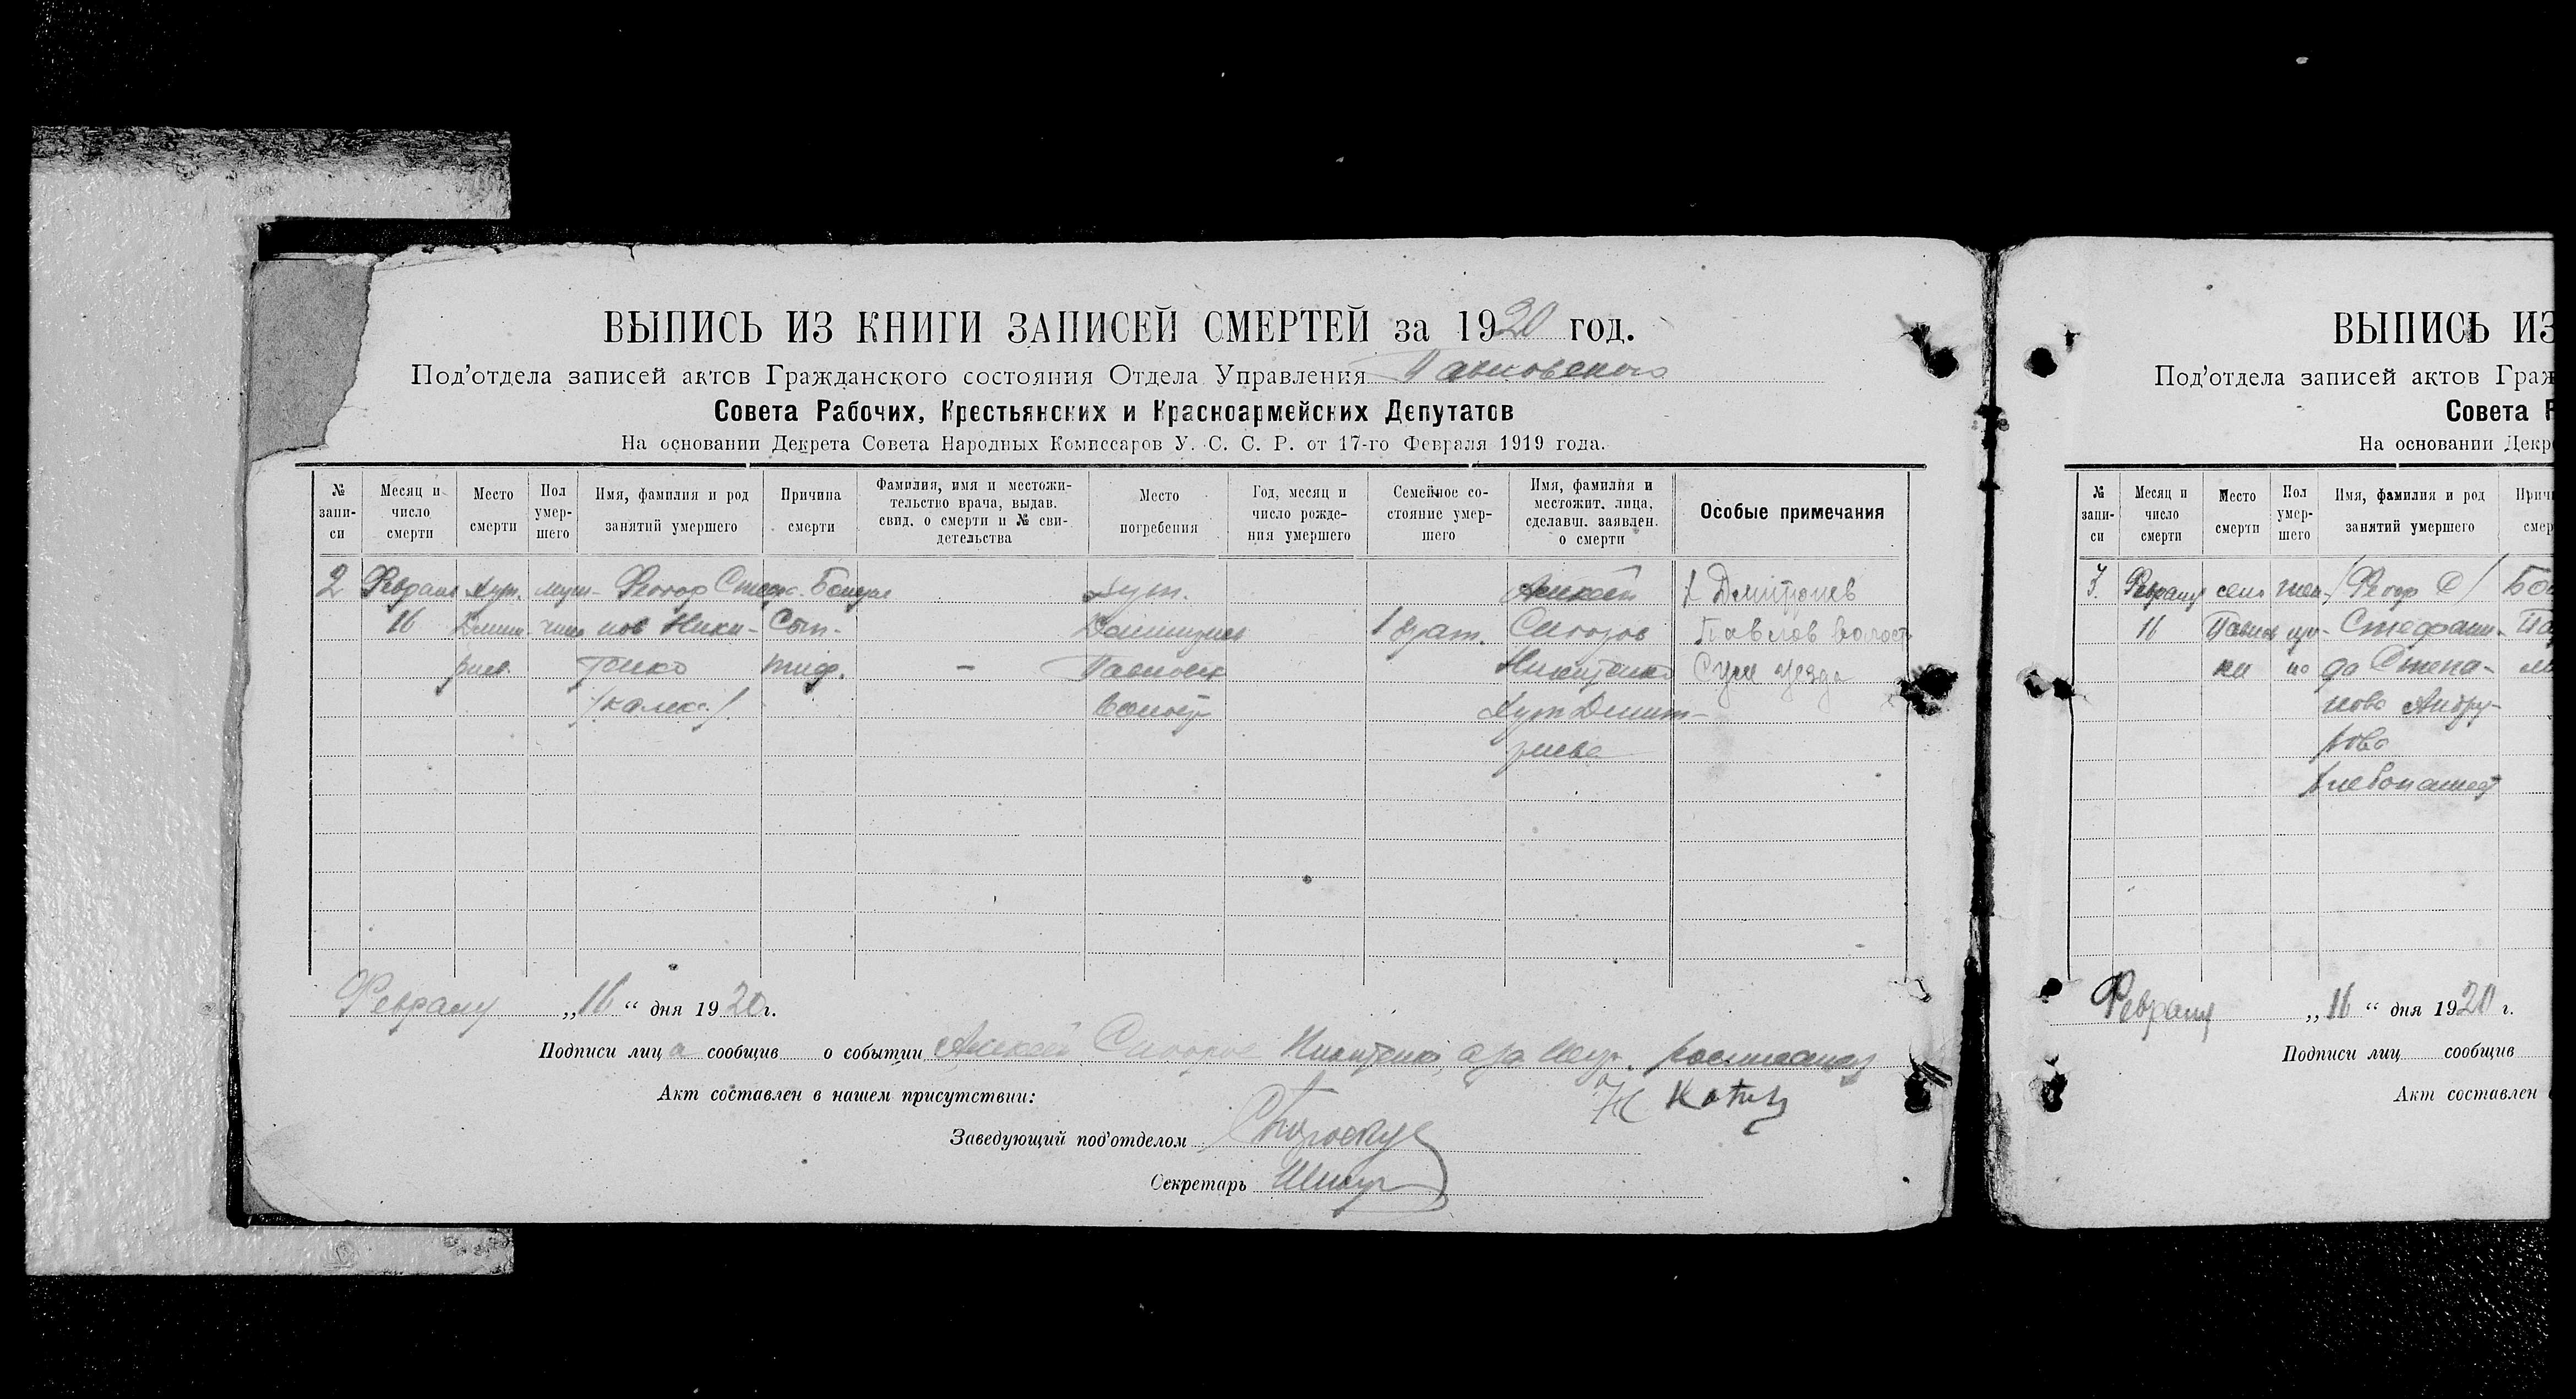 ВЫПИСЬ ИЗ КНИГИ ЗАПИСЕЙ СМЕРТЕЙ за 1920 год.
Под’отдела записей актов Гражданского состояния Отдела Управления Павловского
Совета Рабочих, Крестьянских и Красноармейских Депутатов
На основании Декрета Совета Народных Комиссаров У. С. С. Р. от 17-го Февраля 1919 года.
№ запи-си
Месяц и число смерти
Место смерти
Пол умер-шего
Имя, фамилия и род занятий умершего
Причина смерти
Фамилия, имя и местожи-тельство врача, выдав. свид. о смерти и № сви-детельства
Место погребения
Год, месяц и число рожде-ния умершего
Семейное со-стояние умер-шего
Имя, фамилия и местожит. лица, сделавш. заявлен. о смерти
Особые примечания
2
Февраля
16
Хут.
Дмит-
риев.
муж-
Федор
нов Ники-
тенко
/калека/.
Сып-
тиф.
—
Хут.
Павловск
Волост
1 брат.
Алексей
Никитенко
Хут Дмит-
риева
Х Дмитриев
Павлов волост
Сум уезда
Февраля „16“ дня 1920 г.
Подписи лица сообщив о событии Алексей Никитенко, а за
Акт составлен в нашем присутствии:
Заведующий под’отделом
Секретарь
ВЫПИСЬ ИЗ
Под’отдела записей актов Граж
Совета Р
На основании Декр
№ запи-си
Месяц и число смерти
Место смерти
Пол умер-шего
Имя, фамилия и род занятий умершего
Прич
смер
3.
Февраля
16
село
Павлов
ки
жен-
/Федор С/
Стефани-
да Степа-
нова Андру-
Хлебопашест
Февраля „16“ дня 1920 г.
Подписи лиц сообщив
Акт составлен